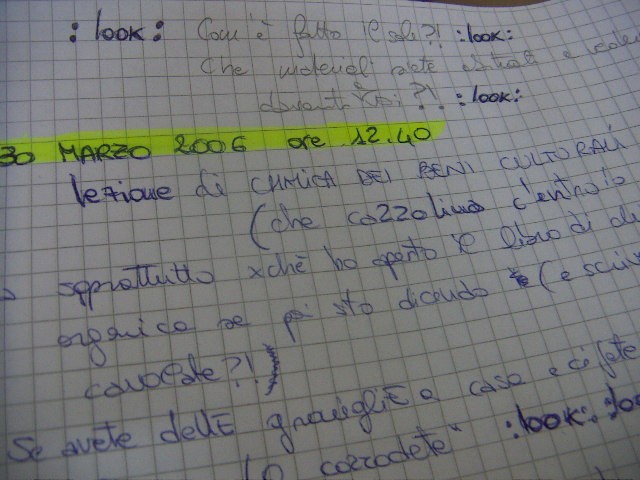 :look: Com'è fatto il sole?! :look:
Che materiali avete estratto e colo
davanti a voi?! :look:
30 MARZO 2006 ore 12.40
lezione di CHIMICA DEI BENI CULTURALI
(che cazzolina c'entro io
soprattutto xchè ho aperto il libro di
organica se poi sto dicendo (e scriv
cavolate?!)
Se avete delle graniglie a casa e ci fate
corrodete" :look: :loo